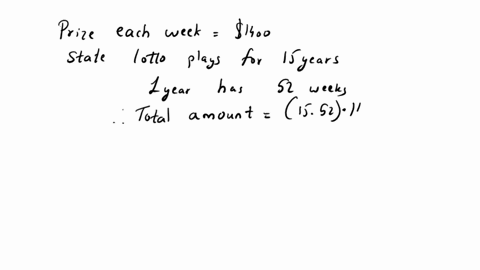 Prize each week = $1400
State lotto plays for 15 years
1 year has 52 weeks
∴ Total amount = (15.52).11